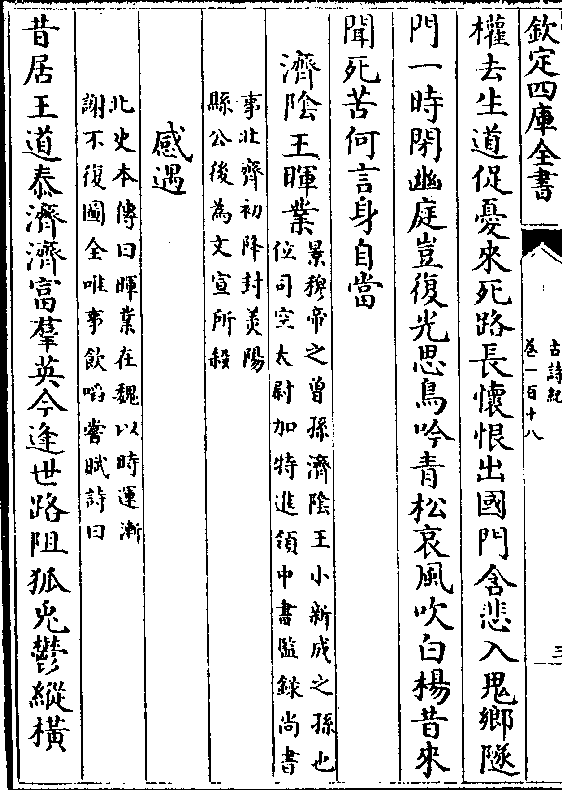 欽定四庫全書
古詩紀
卷一百十八
三
權去生道促憂來死路長懷恨出國門含悲入鬼鄉隧
門一時閉幽庭豈復光思鳥吟青松哀風吹白楊昔來
聞死苦何言身自當
濟陰王暉業
景穆帝之曾孫濟陰王小新成之孫也
位司空太尉加特進領中書監錄尚書
事北齊初降封美陽
縣公後為文宣所殺
感遇
北史本傳曰暉業在魏以時運漸
謝不復圖全唯事飲啗嘗賦詩曰
昔居王道泰濟濟富羣英今逢世路阻狐兎鬱縱橫